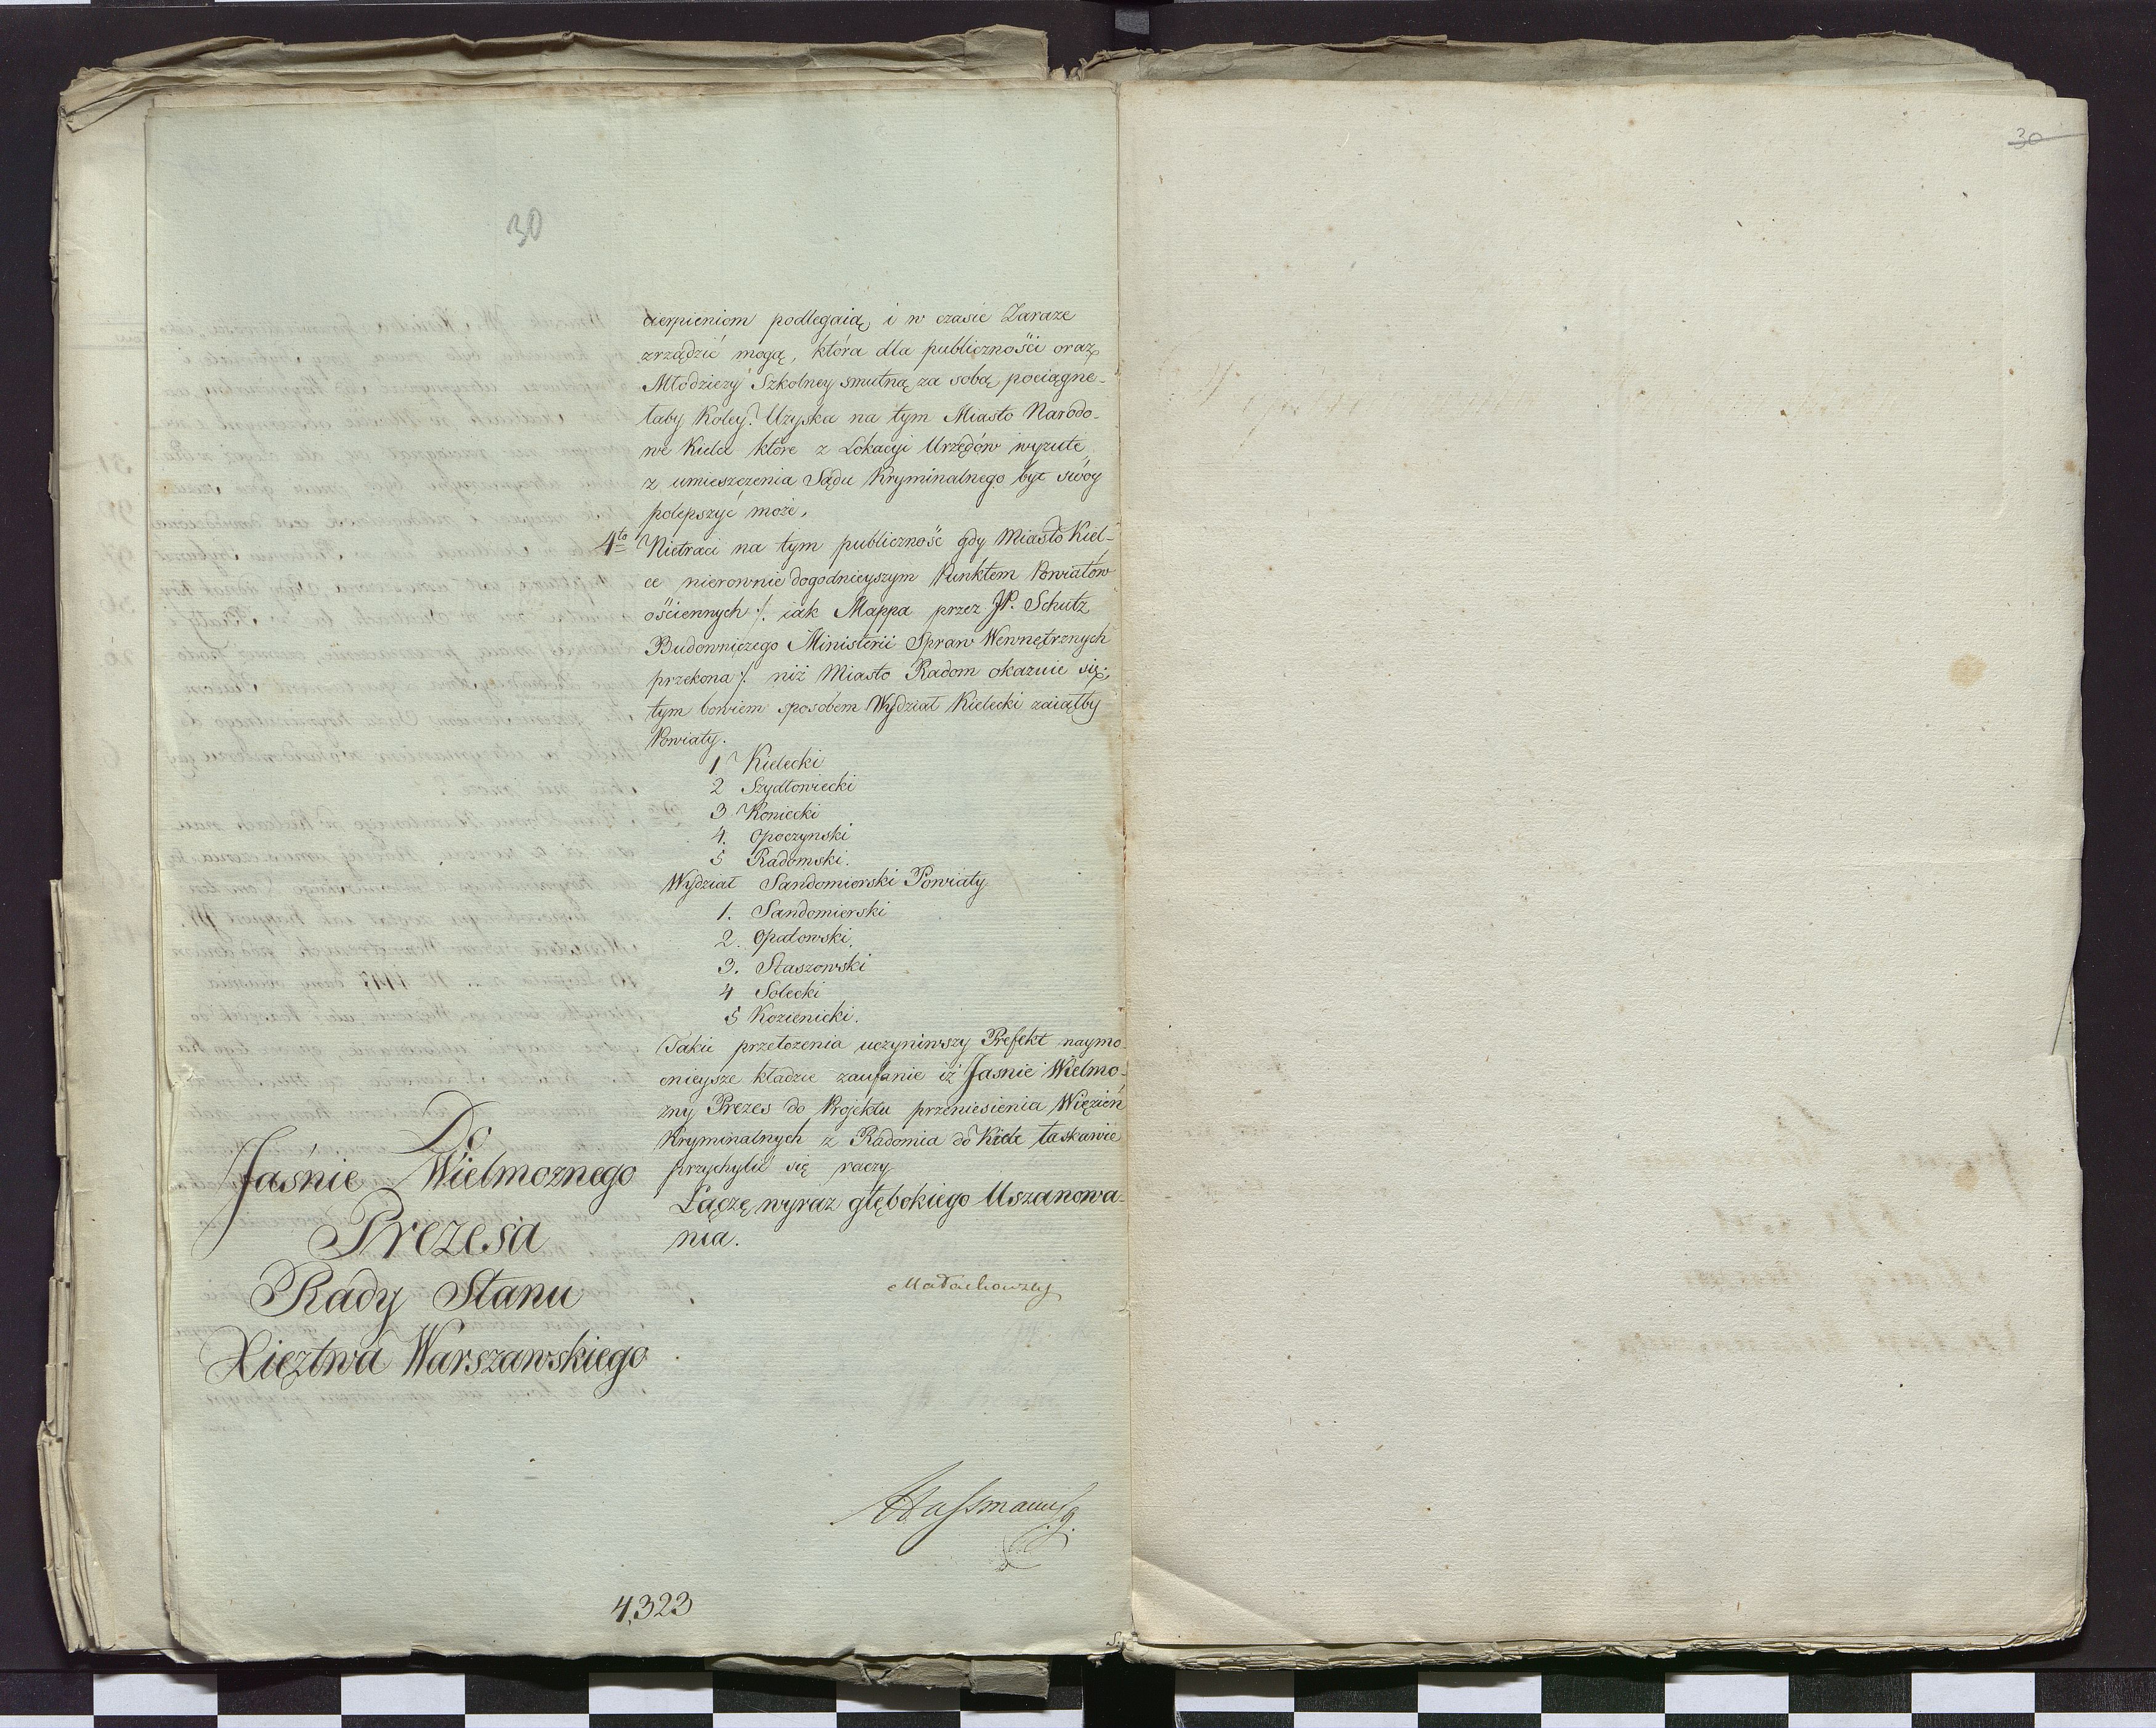 30
30
cierpieniom podlegaią, i w czasie Zaraze
zrządzić mogą, która dla publicznośći oraz
Młodzieży Szkolney smutną za sobą pociągne-
łaby Koley. Uzyska na tym Miasto Narodo-
we Kielce które z Lokacyi Urzędów wyzute,
z umieszczenia Sądu Kryminalnego byt swóy
polepszyć może.
4to Nietraci na tym publiczność gdy Miasto Kiel-
ce nierownie dogodnieyszym Punktem Powiatów
ościennych /. iak Mappa przez JP. Schutz
Budowniczego Ministerii Spraw Wewnętrznych
przekona /. niż Miasto Radom okazuie się,
tym bowiem sposobem Wydział Kielecki zaiąłby
Powiaty.
1 Kielecki
2 Szydłowiecki
3 Koniecki
4. Opoczynski
5 Radomski.
Wydział Sandomierski Powiaty
1. Sandomierski
2. Opatowski.
3. Staszowski
4 Solecki
5 Kozienicki.
Takie przełożenia uczyniwszy Prefekt naymo-
cnieysze kładzie zaufanie iż Jasnie Wielmo-
żny Prezes do Projektu przeniesienia Więzień
Kryminalnych z Radomia do Kielc łaskawie
przychylić się raczy
Łączę wyraz głębokiego Uszanowa-
nia.
Małachowski
Do
Jaśnie Wielmoznego
Prezesa
Rady Stanu
Xięztwa Warszawskiego
4,323